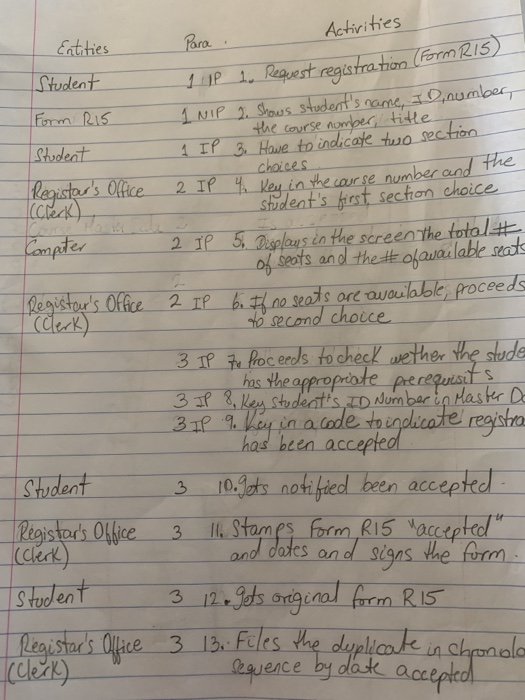 Entities Para. Activities
Student 1 IP 1. Request registration (Form R15)
Form R15 1 NIP 2. Shows student's name, ID, number,
the course number, title
Student 1 IP 3. Have to indicate two section
choices
Registar's Office 2 IP 4. Key in the course number and the
(Clerk) student's first section choice
Computer 2 IP 5. Displays in the screen the total #
of seats and the # of available seats
Registar's Office 2 IP 6. If no seats are available, proceeds
(Clerk) to second choice
3 IP 7. Proceeds to check wether the stude
has the appropriate prerequisits
3 IP 8. Key student's ID Number in Master D
3 IP 9. Key in a code to indicate registra
has been accepted
Student 3 10. gets notified been accepted.
Registar's Office 3 11. Stamps Form R15 "accepted"
(Clerk) and dates and signs the form.
Student 3 12. gets original form R15
Registar's Office 3 13. Files the duplicate in chronolo
(Clerk) sequence by date accepted